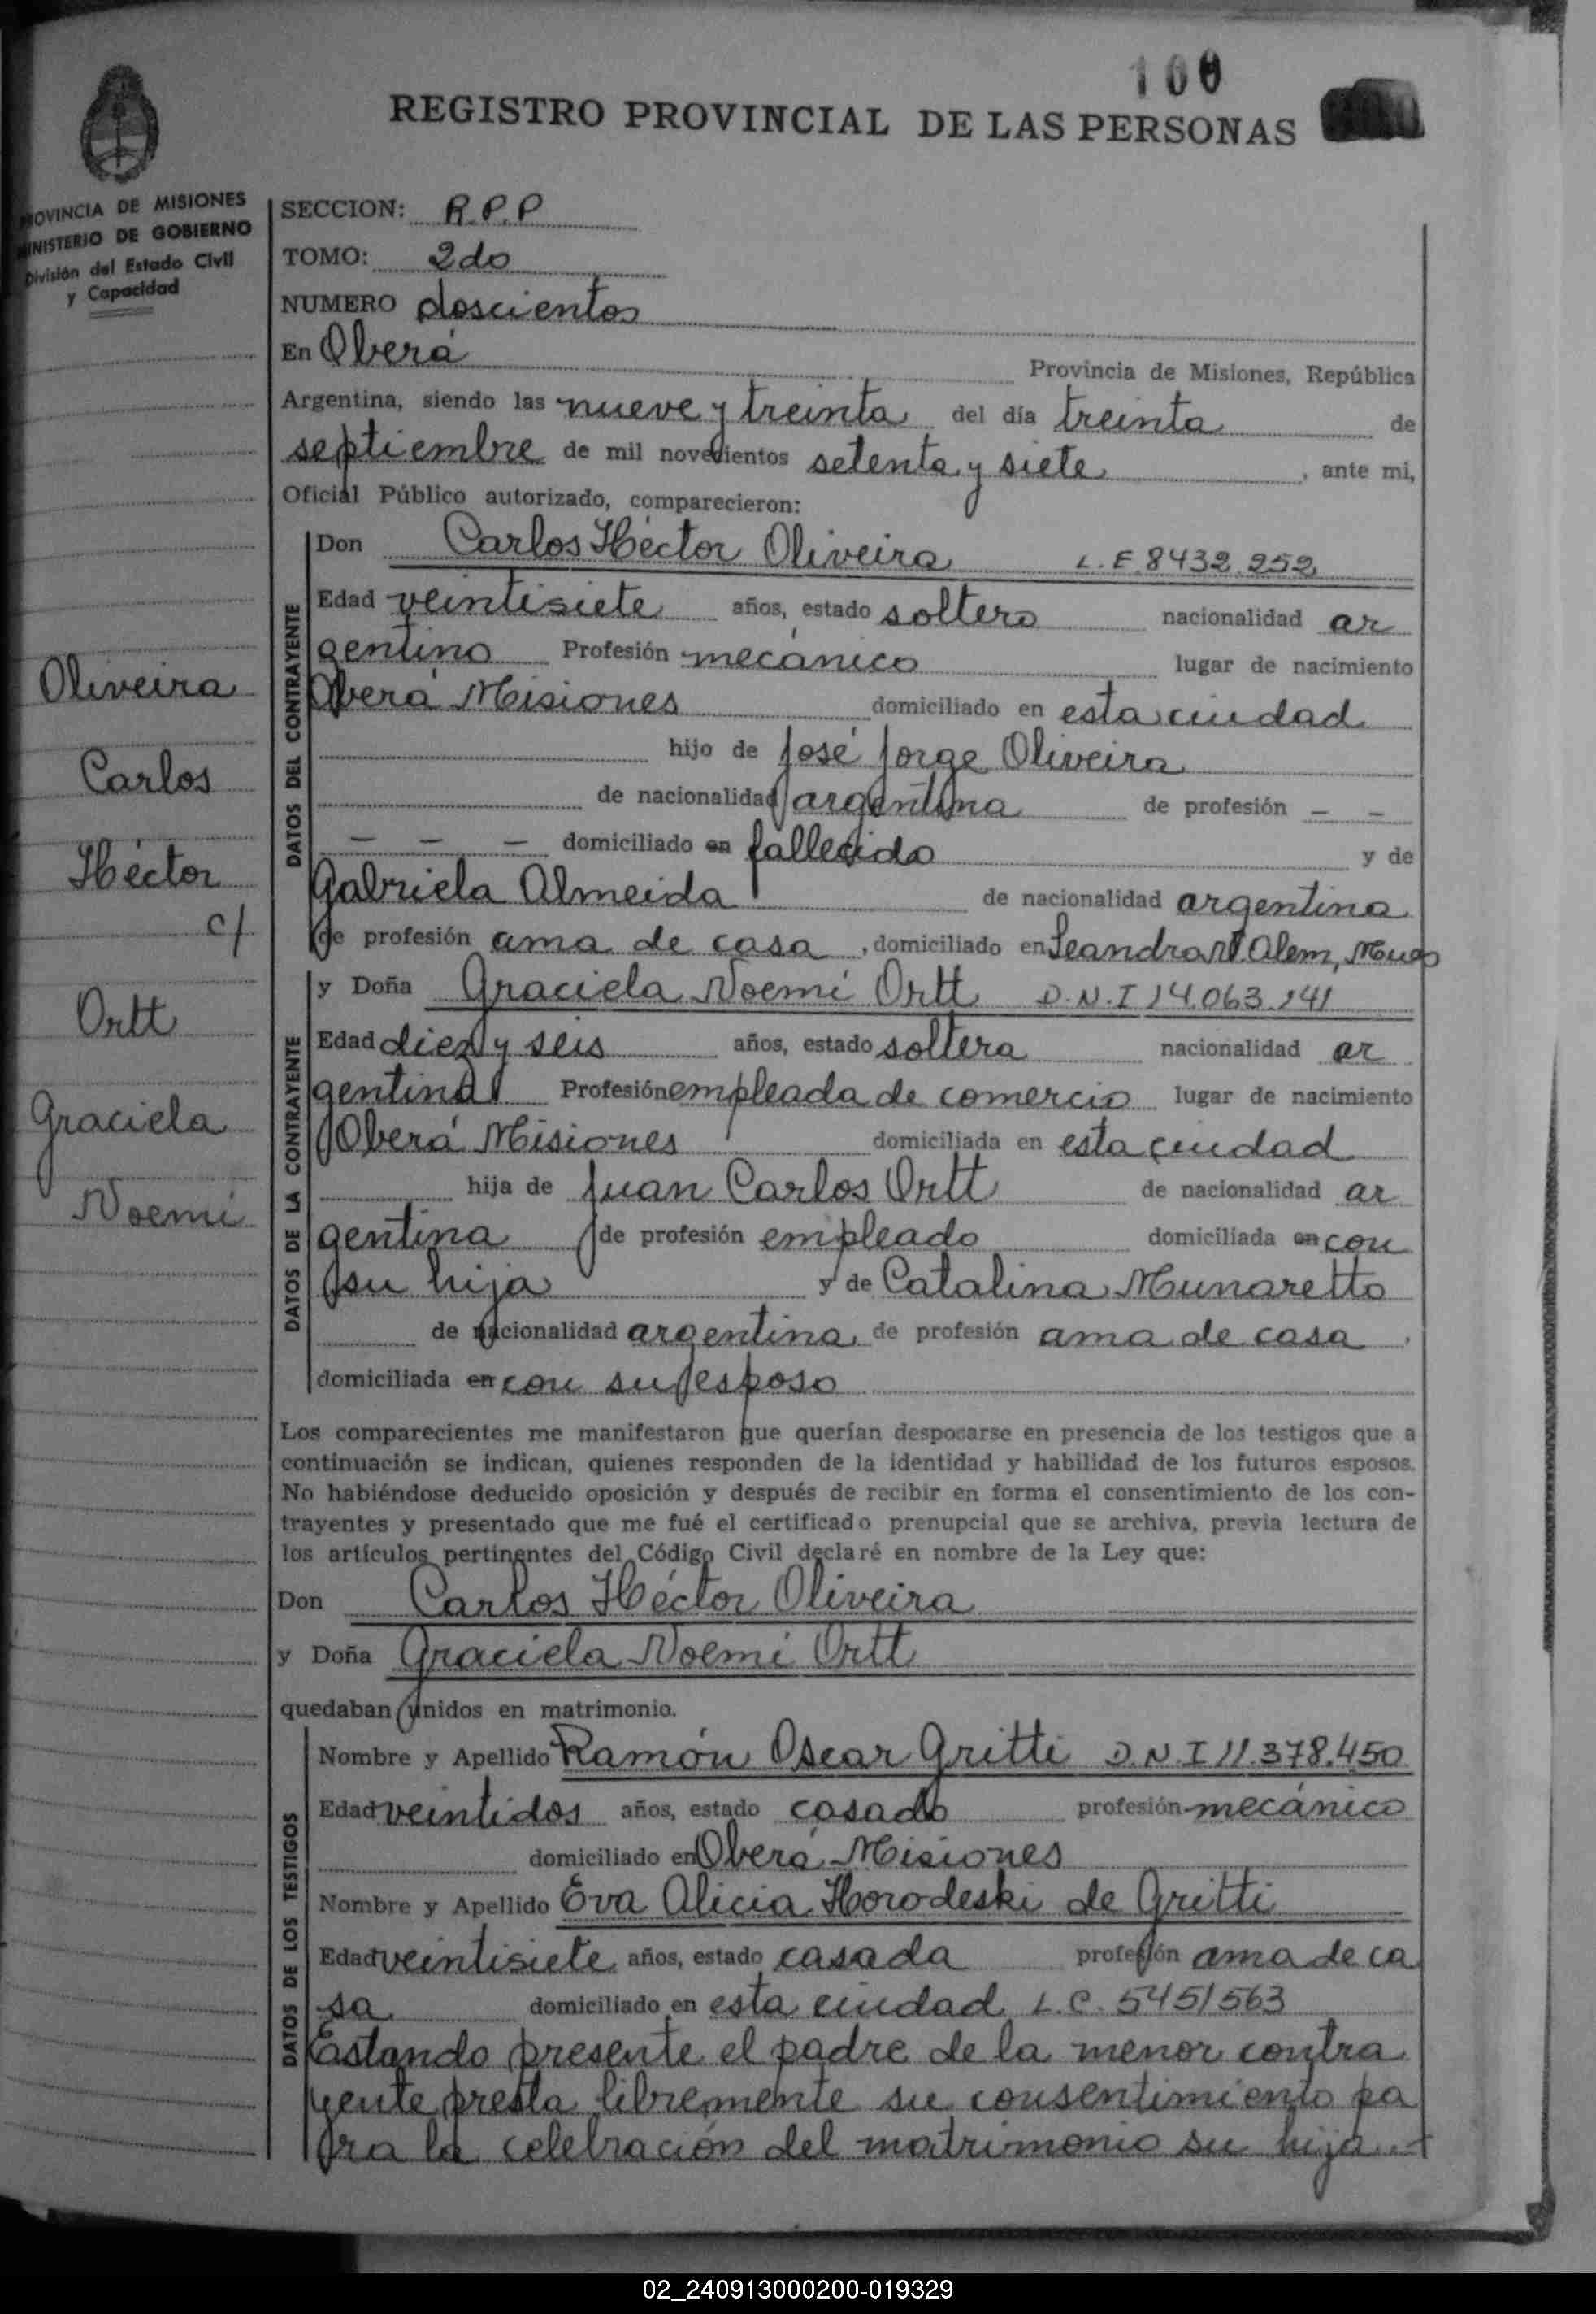 100
REGISTRO PROVINCIAL DE LAS PERSONAS
PROVINCIA DE MISIONES
MINISTERIO DE GOBIERNO
División del Estado Civil
y Capacidad
SECCION: R.P.P
TOMO: 2do
NUMERO doscientos
En Oberá Provincia de Misiones, República
Argentina, siendo las nueve y treinta del día treinta de
septiembre de mil novecientos setenta y siete, ante mi,
Oficial Público autorizado, comparecieron:
Oliveira
Carlos
Héctor
c/
Ortt
Graciela
Noemi
DATOS DEL CONTRAYENTE
Don Carlos Héctor Oliveira L.E 8432.252
Edad veintisiete años, estado soltero nacionalidad ar
gentino Profesión mecánico lugar de nacimiento
Oberá Misiones domiciliado en esta ciudad
hijo de José Jorge Oliveira
de nacionalidad argentina de profesión — —
— — — domiciliado en fallecido y de
Gabriela Almeida de nacionalidad argentina
de profesión ama de casa, domiciliado en Leandro N Alem, Mnes
DATOS DE LA CONTRAYENTE
y Doña Graciela Noemí Ortt D.N.I 14.063.141
Edad diez y seis años, estado soltera nacionalidad ar
gentina Profesión empleada de comercio lugar de nacimiento
Oberá Misiones domiciliada en esta ciudad
hija de Juan Carlos Ortt de nacionalidad ar
gentina de profesión empleado domiciliada en con
su hija y de Catalina Munaretto
de nacionalidad argentina de profesión ama de casa,
domiciliada en con su esposo
Los comparecientes me manifestaron que querían desposarse en presencia de los testigos que a
continuación se indican, quienes responden de la identidad y habilidad de los futuros esposos.
No habiéndose deducido oposición y después de recibir en forma el consentimiento de los con-
trayentes y presentado que me fué el certificado prenupcial que se archiva, previa lectura de
los artículos pertinentes del Código Civil declaré en nombre de la Ley que:
Don Carlos Héctor Oliveira
y Doña Graciela Noemí Ortt
quedaban unidos en matrimonio.
DATOS DE LOS TESTIGOS
Nombre y Apellido Ramón Oscar Gritti D.N.I 11.378.450
Edad veintidos años, estado casado profesión mecánico
domiciliado en Oberá Misiones
Nombre y Apellido Eva Alicia Horodeski de Gritti
Edad veintisiete años, estado casada profesión ama de ca
sa domiciliado en esta ciudad L.C. 5451563
Estando presente el padre de la menor contra
yente presta libremente su consentimiento pa
ra la celebración del matrimonio su hija.-
02_240913000200-019329